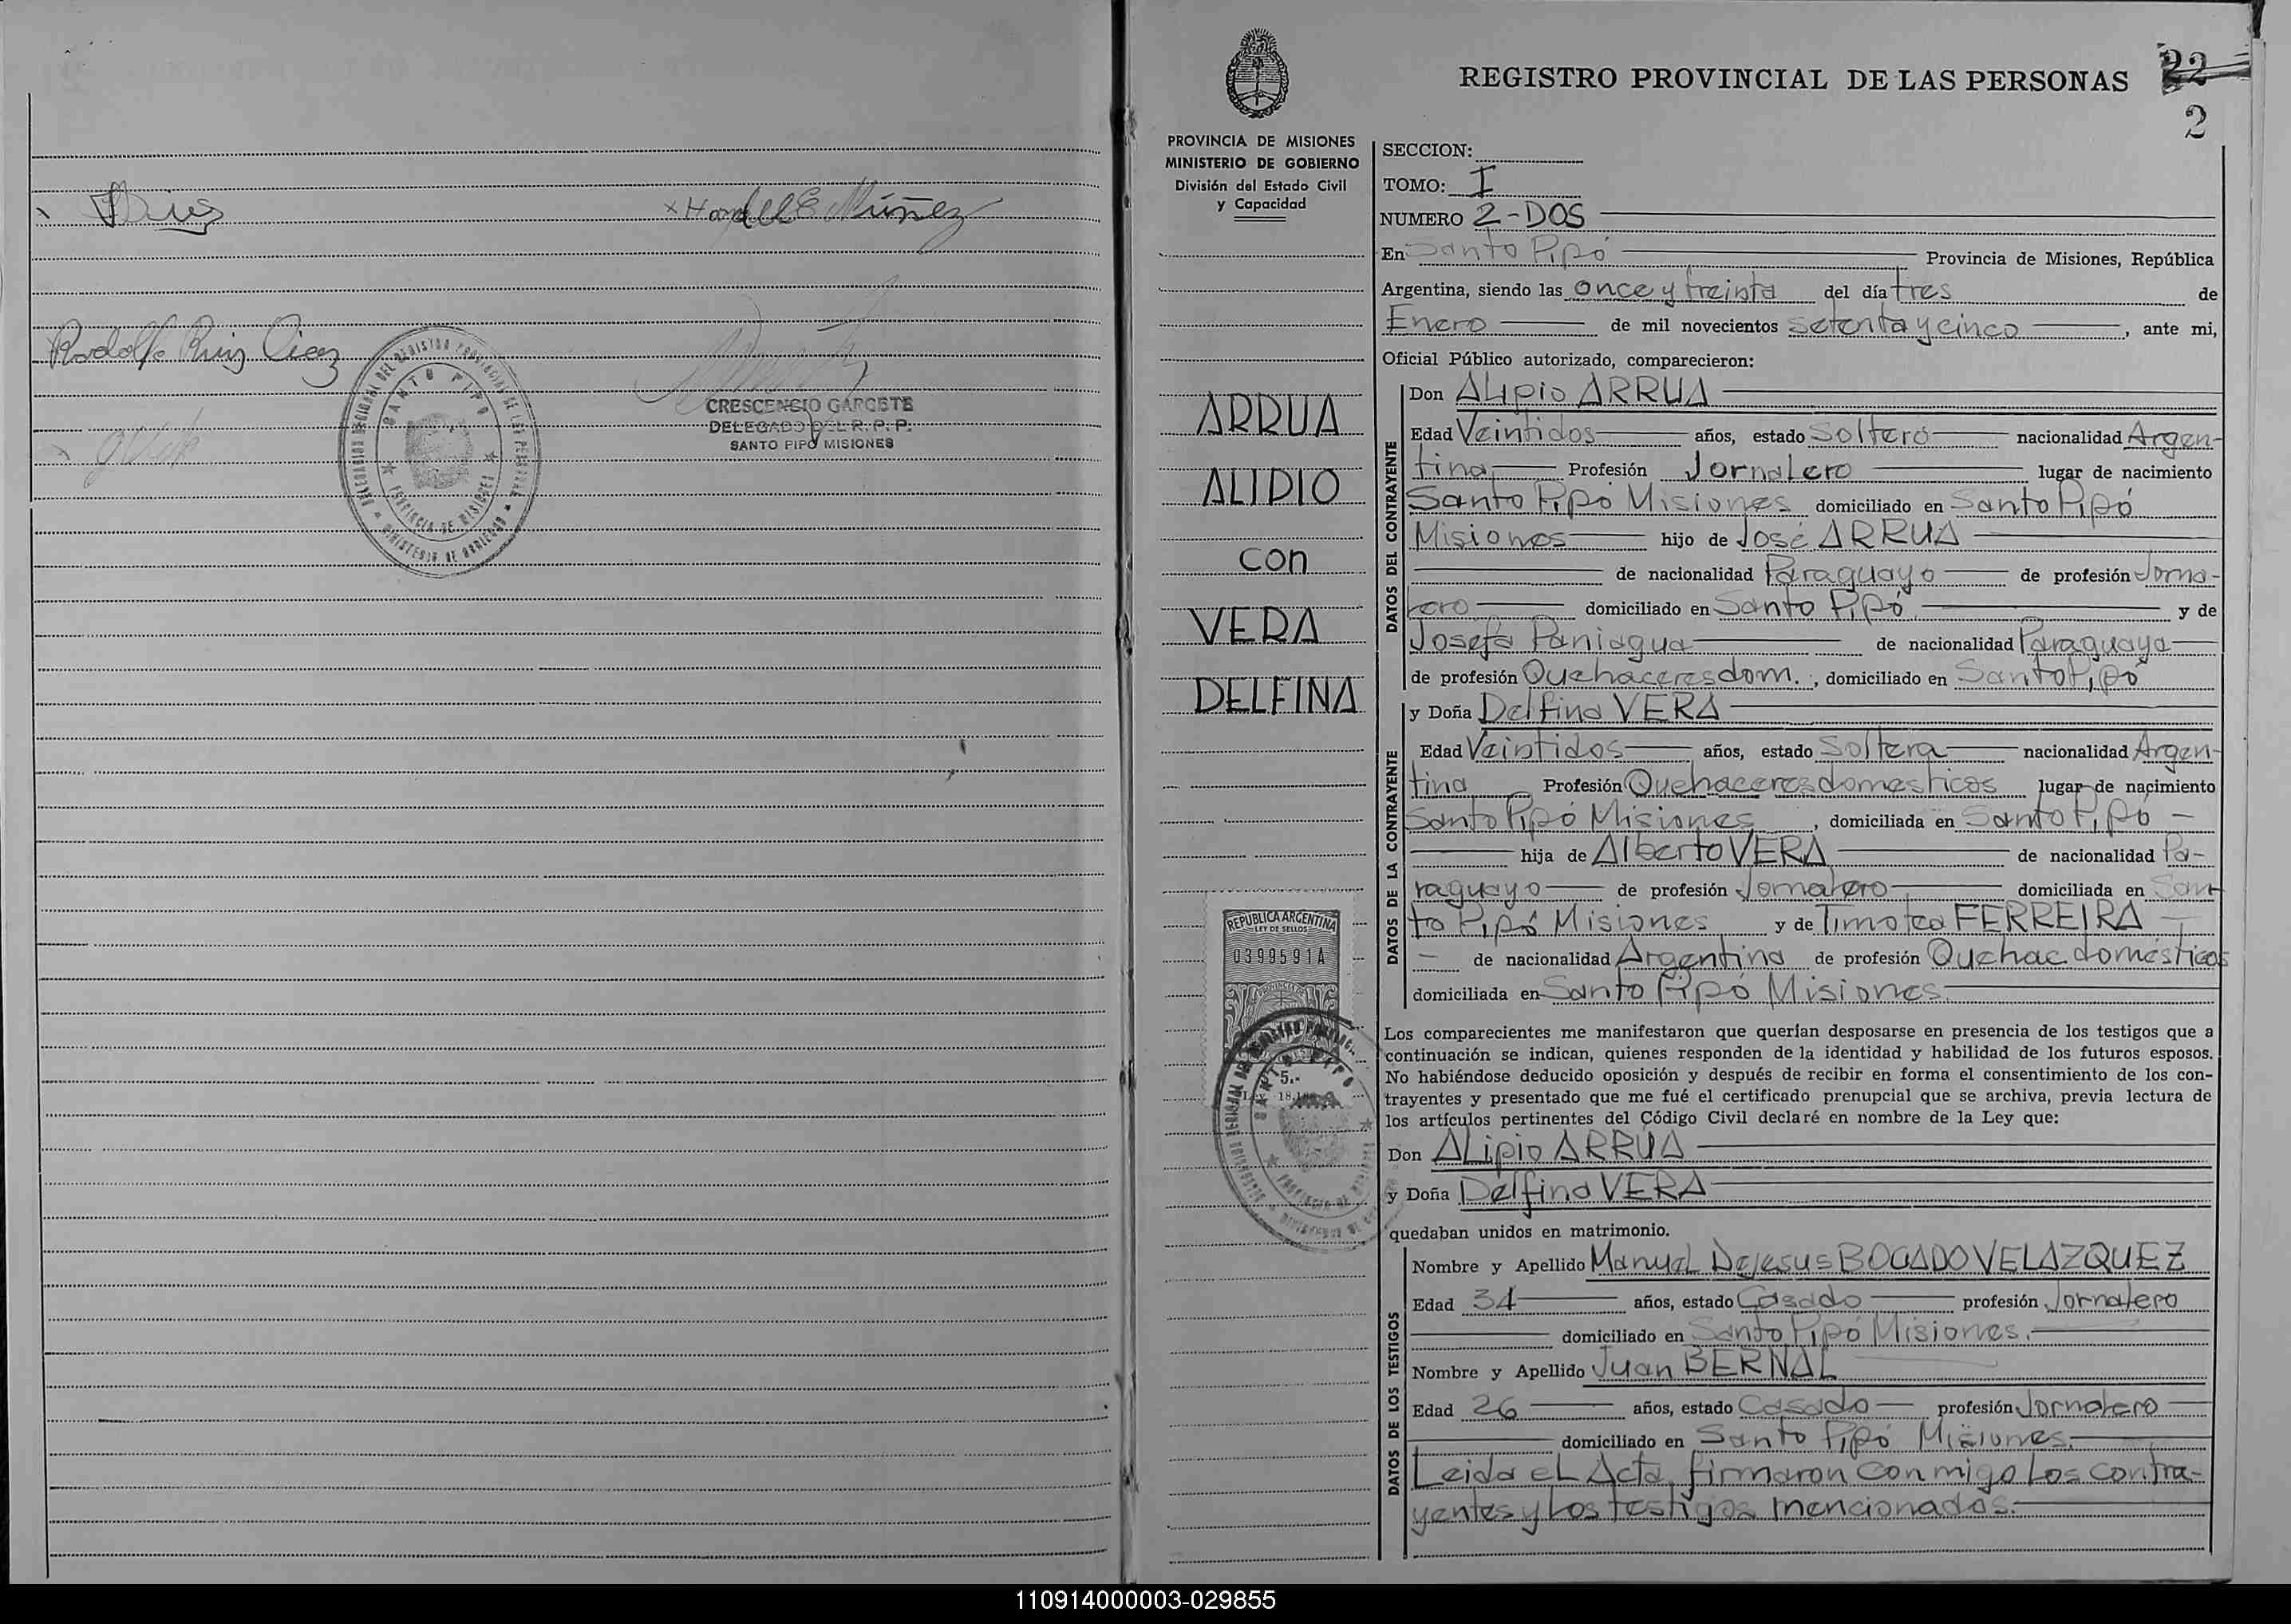 Núñez
Rodolfo Ruiz Diaz
DELEGACION REGIONAL DEL REGISTRO PROVINCIAL DE LAS PERSONAS
SANTO PIPO
PROVINCIA DE MISIONES
MINISTERIO DE GOBIERNO
CRESCENCIO GARCETE
DELEGADO DEL R. P. P.
SANTO PIPO MISIONES
REGISTRO PROVINCIAL DE LAS PERSONAS
22
2
PROVINCIA DE MISIONES
MINISTERIO DE GOBIERNO
División del Estado Civil
y Capacidad
ARRUA
ALIPIO
con
VERA
DELFINA
REPUBLICA ARGENTINA
LEY DE SELLOS
0399591A
5.-
SECCION:
TOMO: I
NUMERO 2-DOS
En Santo Pipó Provincia de Misiones, República
Argentina, siendo las once y treinta del día tres de
Enero de mil novecientos setenta y cinco, ante mi,
Oficial Público autorizado, comparecieron:
DATOS DEL CONTRAYENTE
Don ALipio ARRUA
Edad Veintidos años, estado Soltero nacionalidad Argen-
tina Profesión Jornalero lugar de nacimiento
Santo Pipó Misiones domiciliado en Santo Pipó
Misiones hijo de José ARRUA
de nacionalidad Paraguayo de profesión Jorna-
lero domiciliado en Santo Pipó y de
Josefa Paniagua de nacionalidad Paraguaya
de profesión Quehaceres dom. , domiciliado en Santo Pipó
DATOS DE LA CONTRAYENTE
y Doña Delfina VERA
Edad Veintidos años, estado Soltera nacionalidad Argen-
tina Profesión Quehaceres domesticos lugar de nacimiento
Santo Pipó Misiones, domiciliada en Santo Pipó -
hija de Alberto VERA de nacionalidad Pa-
raguayo de profesión Jornalero domiciliada en San-
to Pipó Misiones y de Timotea FERREIRA
- de nacionalidad Argentina de profesión Quehac. domésticos
domiciliada en Santo Pipó Misiones.
Los comparecientes me manifestaron que querían desposarse en presencia de los testigos que a
continuación se indican, quienes responden de la identidad y habilidad de los futuros esposos.
No habiéndose deducido oposición y después de recibir en forma el consentimiento de los con-
trayentes y presentado que me fué el certificado prenupcial que se archiva, previa lectura de
los artículos pertinentes del Código Civil declaré en nombre de la Ley que:
Don ALipio ARRUA
y Doña Delfina VERA
quedaban unidos en matrimonio.
DATOS DE LOS TESTIGOS
Nombre y Apellido Manuel DeJesus BOGADO VELAZQUEZ
Edad 34 años, estado Casado profesión Jornalero
domiciliado en Santo Pipó Misiones.
Nombre y Apellido Juan BERNAL
Edad 26 años, estado Casado profesión Jornalero
domiciliado en Santo Pipó Misiones.
Leida el Acta, firmaron conmigo los contra-
yentes y los testigos mencionados.
110914000003-029855